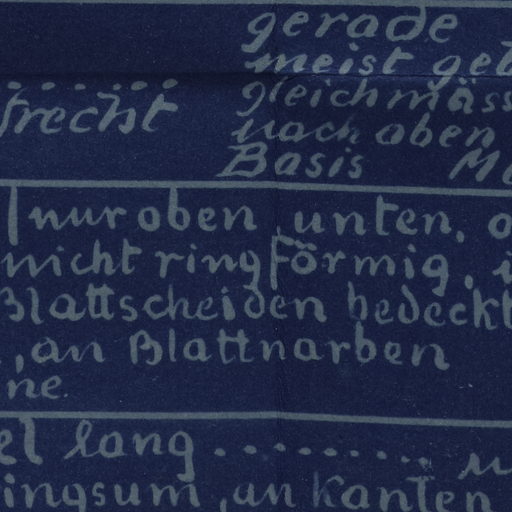 gerade
meist
gleichmäss
frecht nach oben
Basis
nur oben unten.
nicht ringförmig,
Blattscheiden bedeckt
, an Blattnarben
ne.
el lang ..........
ingsum, an Kanten